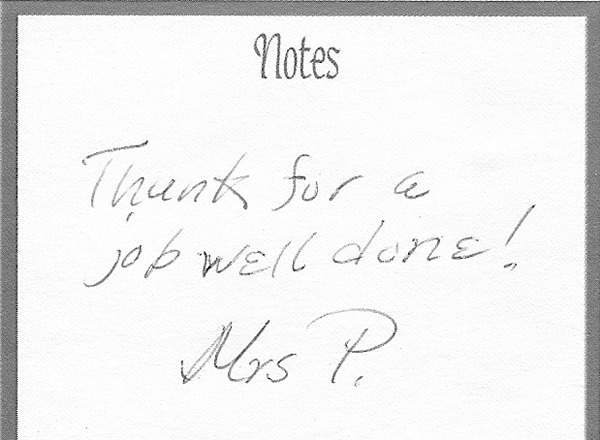 Notes
Thank for a
job well done!
Mrs P.